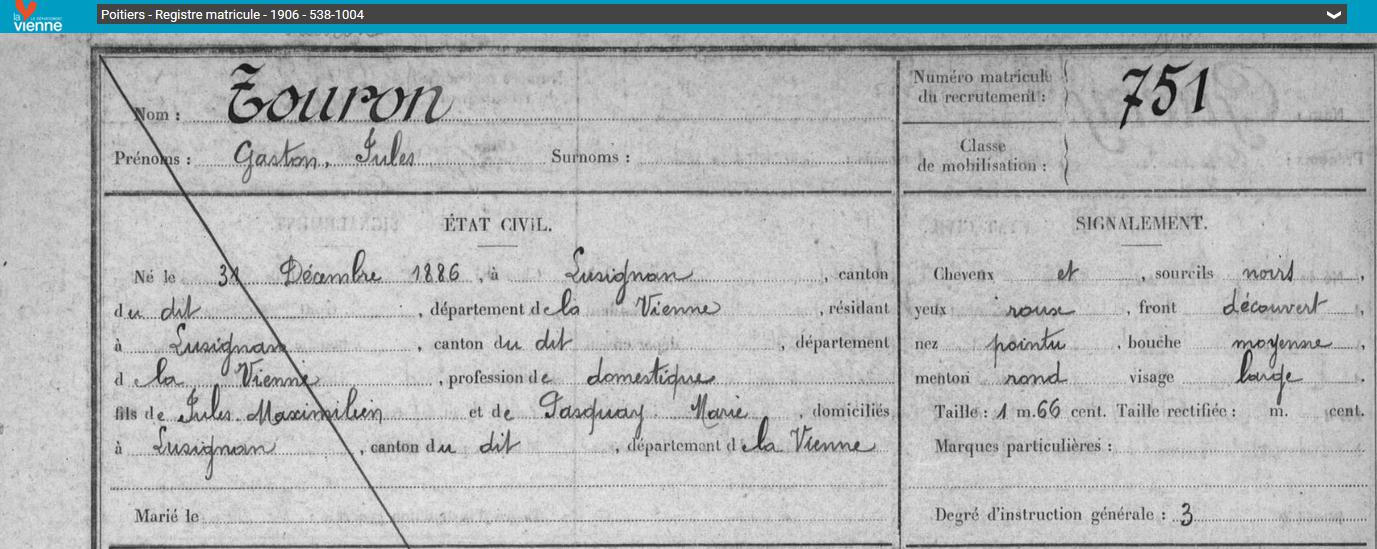 la vienne LE DÉPARTEMENT
Poitiers - Registre matricule - 1906 - 538-1004
Nom : Touron
Prénoms : Gaston, Jules Surnoms :
Numéro matricule
du recrutement : 751
Classe
de mobilisation :
ÉTAT CIVIL.
Né le 31 Décembre 1886, à Lusignan, canton
du dit, département de la Vienne, résidant
à Lusignan, canton du dit, département
d e la Vienne, profession de domestique
fils de Jules Maximilien et de Pasquay Marie, domiciliés
à Lusignan, canton du dit, département d e la Vienne
Marié le
SIGNALEMENT.
Cheveux et, sourcils noirs,
yeux roux, front découvert,
nez pointu, bouche moyenne,
menton rond visage large.
Taille : 1 m. 66 cent. Taille rectifiée : m. cent.
Marques particulières :
Degré d'instruction générale : 3